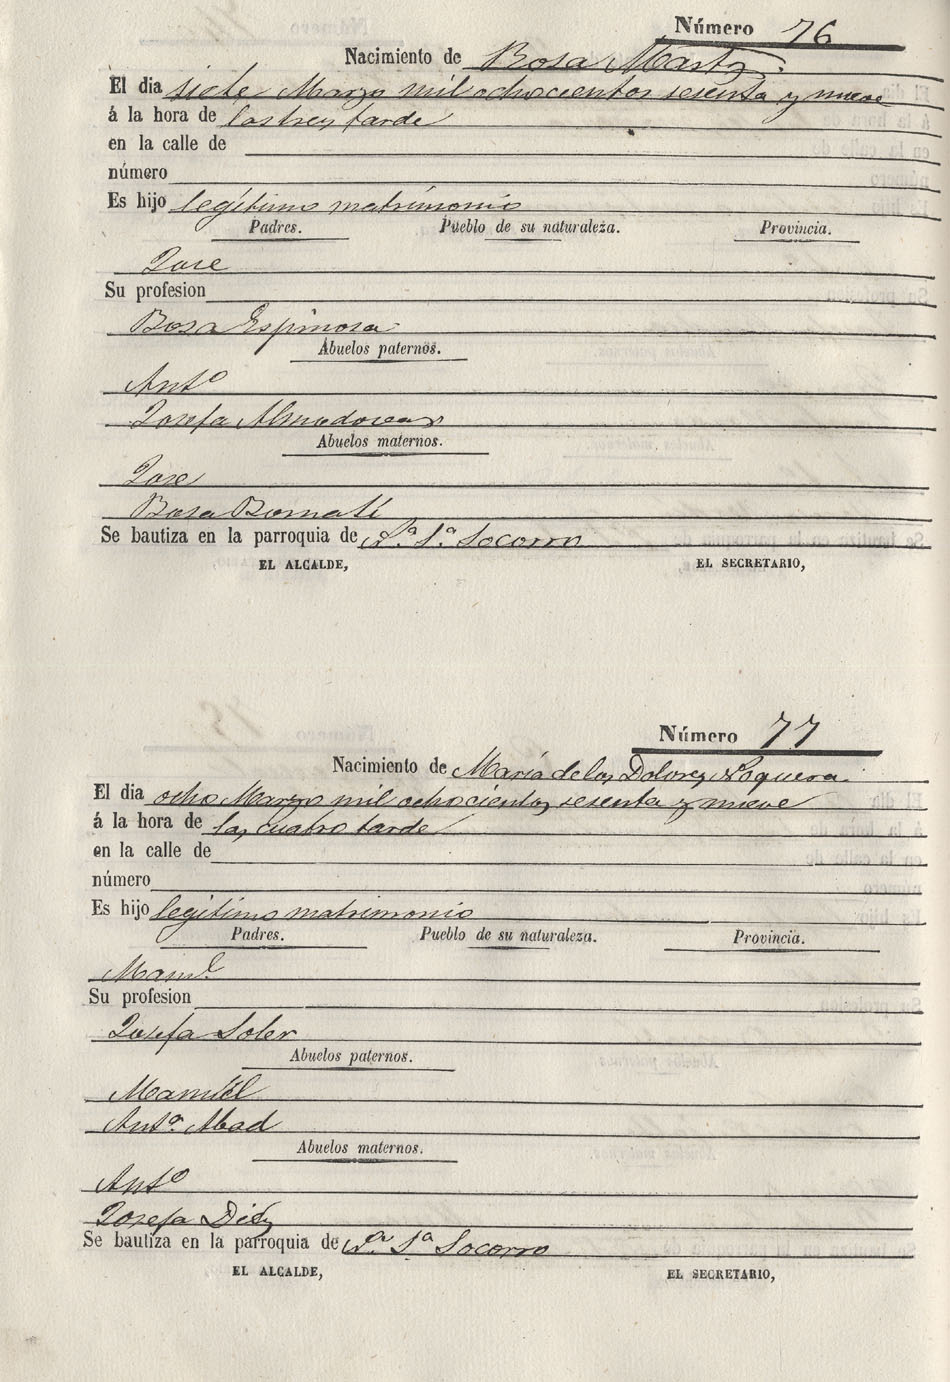 Número 76
Nacimiento de Rosa Martz.
El dia siete Marzo mil ochocientos sesenta y nueve
á la hora de las tres tarde
en la calle de
número
Es hijo legítimo matrimonio
Padres. Pueblo de su naturaleza. Provincia.
Jose
Su profesion
Rosa Espinosa
Abuelos paternos.
Antº
Josefa Almodovar
Abuelos maternos.
Jose
Rosa Bernatí
Se bautiza en la parroquia de Nª Sª Socorro
EL ALCALDE, EL SECRETARIO,
Número 77
Nacimiento de María de los Dolores Noguera
El dia ocho Marzo mil ochocientos sesenta y nueve
á la hora de las cuatro tarde
en la calle de
número
Es hijo legítimo matrimonio
Padres. Pueblo de su naturaleza. Provincia.
Manl.
Su profesion
Josefa Soler
Abuelos paternos.
Manuel
Antª Abad
Abuelos maternos.
Antº
Josefa Diéz
Se bautiza en la parroquia de Nª Sª Socorro
EL ALCALDE, EL SECRETARIO,